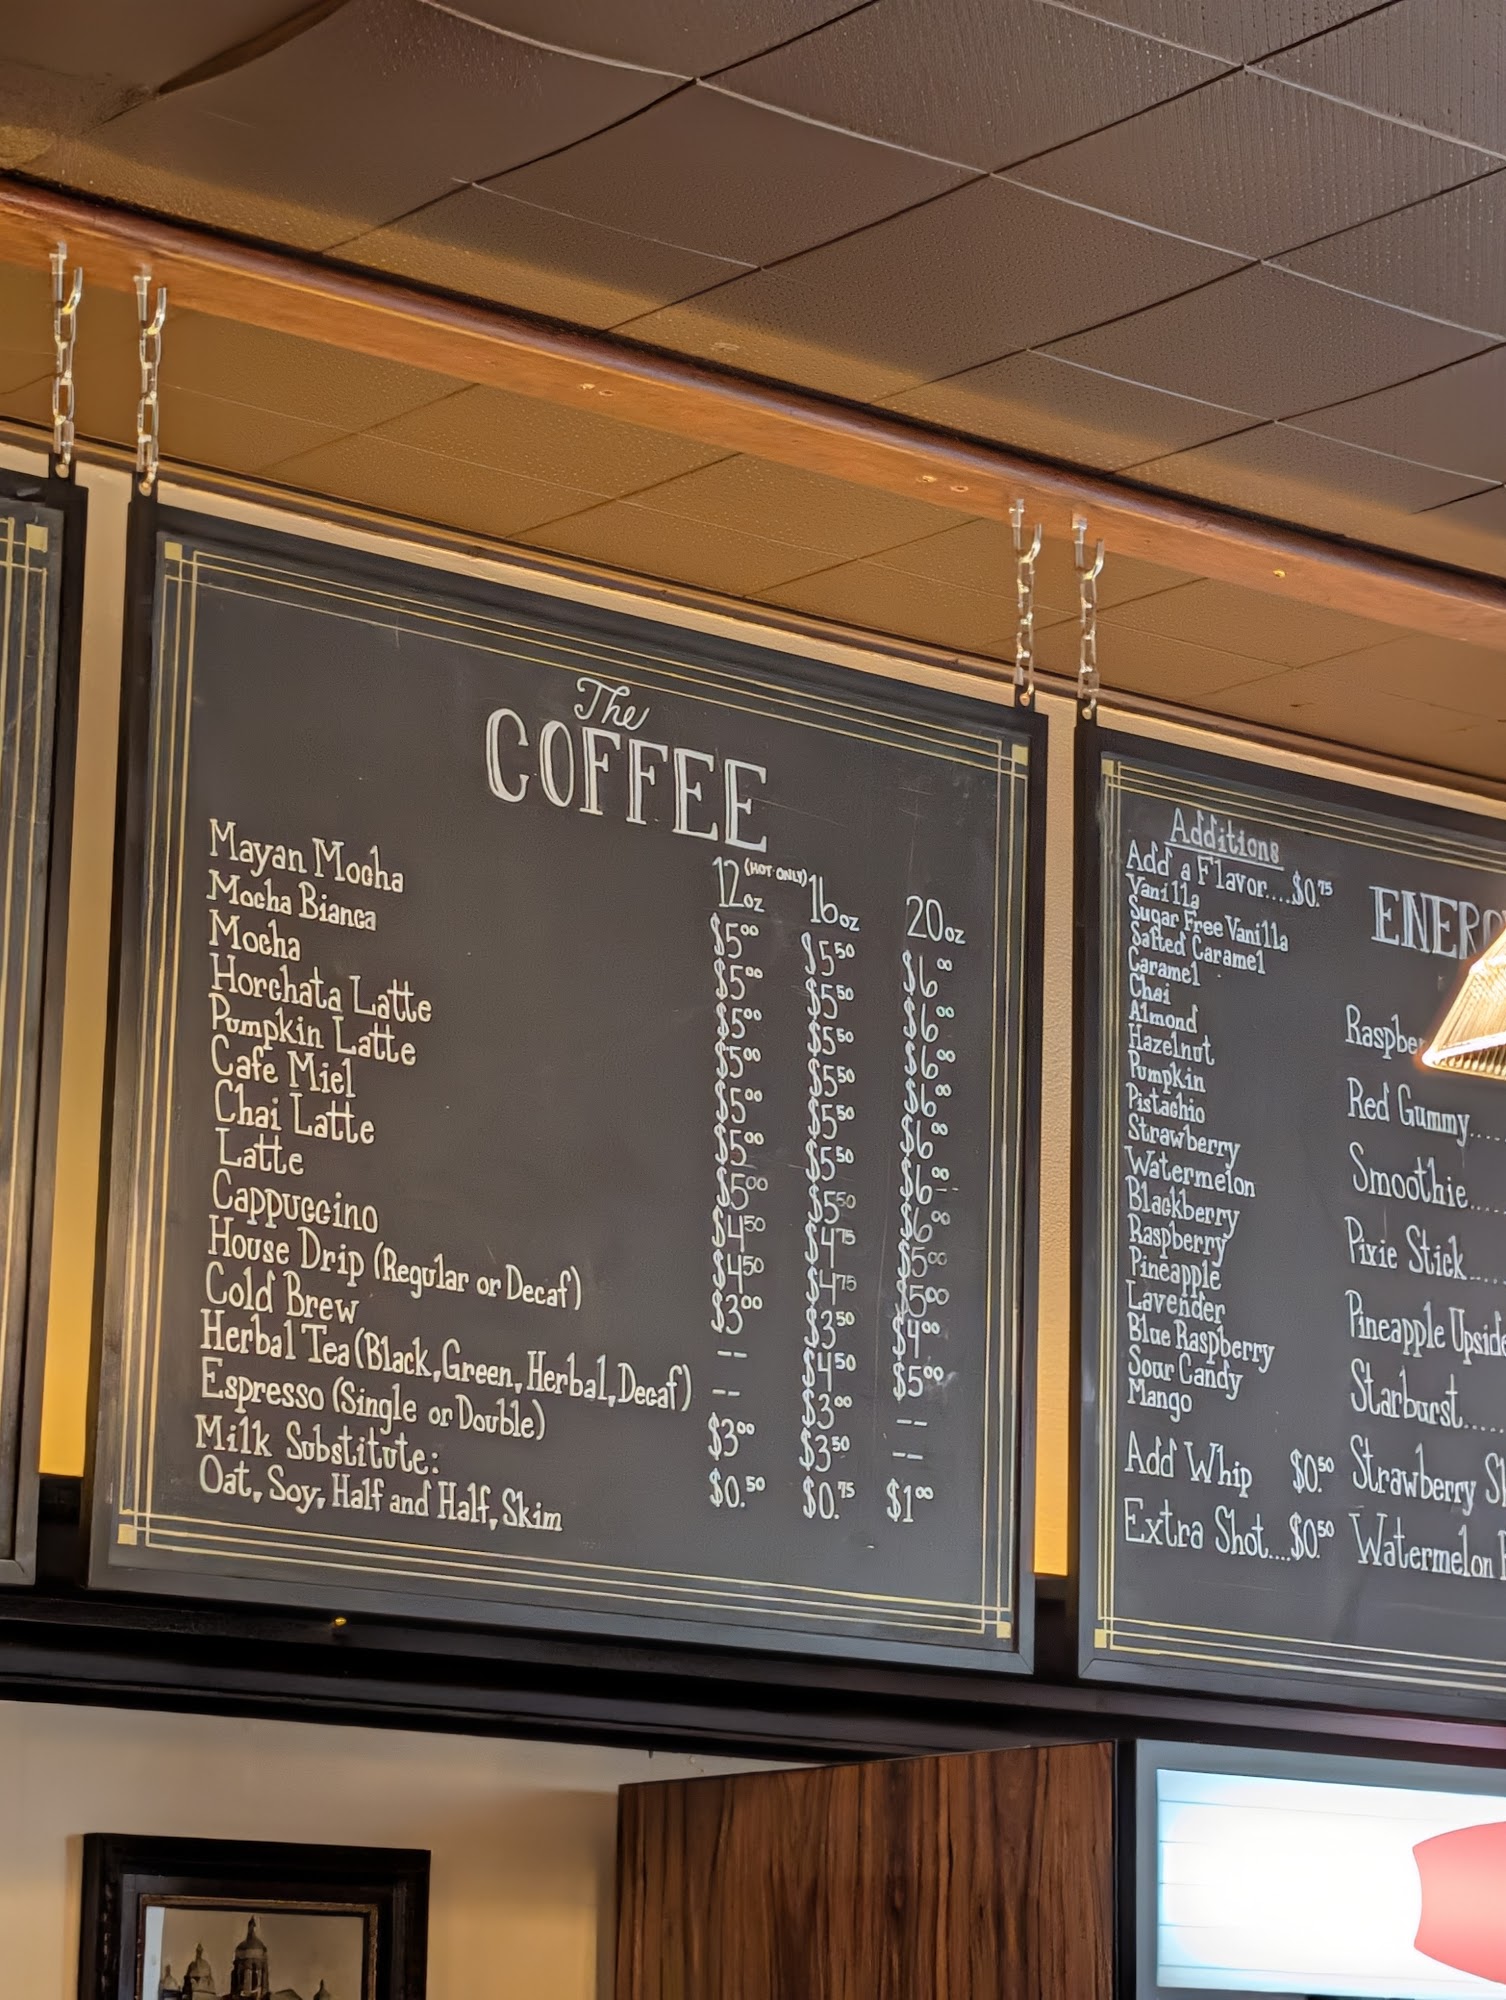 The
COFFEE
12oz (HOT ONLY) 16oz 20oz
Mayan Mocha $5.00 $5.50 $6.00
Mocha Bianca $5.00 $5.50 $6.00
Mocha $5.00 $5.50 $6.00
Horchata Latte $5.00 $5.50 $6.00
Pumpkin Latte $5.00 $5.50 $6.00
Cafe Miel $5.00 $5.50 $6.00
Chai Latte $5.00 $5.50 $6.00
Latte $4.50 $4.75 $5.00
Cappuccino $4.50 $4.75 $5.00
House Drip (Regular or Decaf) $3.00 $3.50 $4.00
Cold Brew -- $4.50 $5.00
Herbal Tea (Black, Green, Herbal, Decaf) -- $3.00 --
Espresso (Single or Double) $3.00 $3.50 --
Milk Substitute: $0.50 $0.75 $1.00
Oat, Soy, Half and Half, Skim
Additions
Add a Flavor....$0.75
Vanilla
Sugar Free Vanilla
Salted Caramel
Caramel
Chai
Almond
Hazelnut
Pumpkin
Pistachio
Strawberry
Watermelon
Blackberry
Raspberry
Pineapple
Lavender
Blue Raspberry
Sour Candy
Mango
Add Whip $0.50
Extra Shot....$0.50
Red Gummy....
Smoothie....
Pixie Stick....
Pineapple
Starburst....
Strawberry
Watermelon